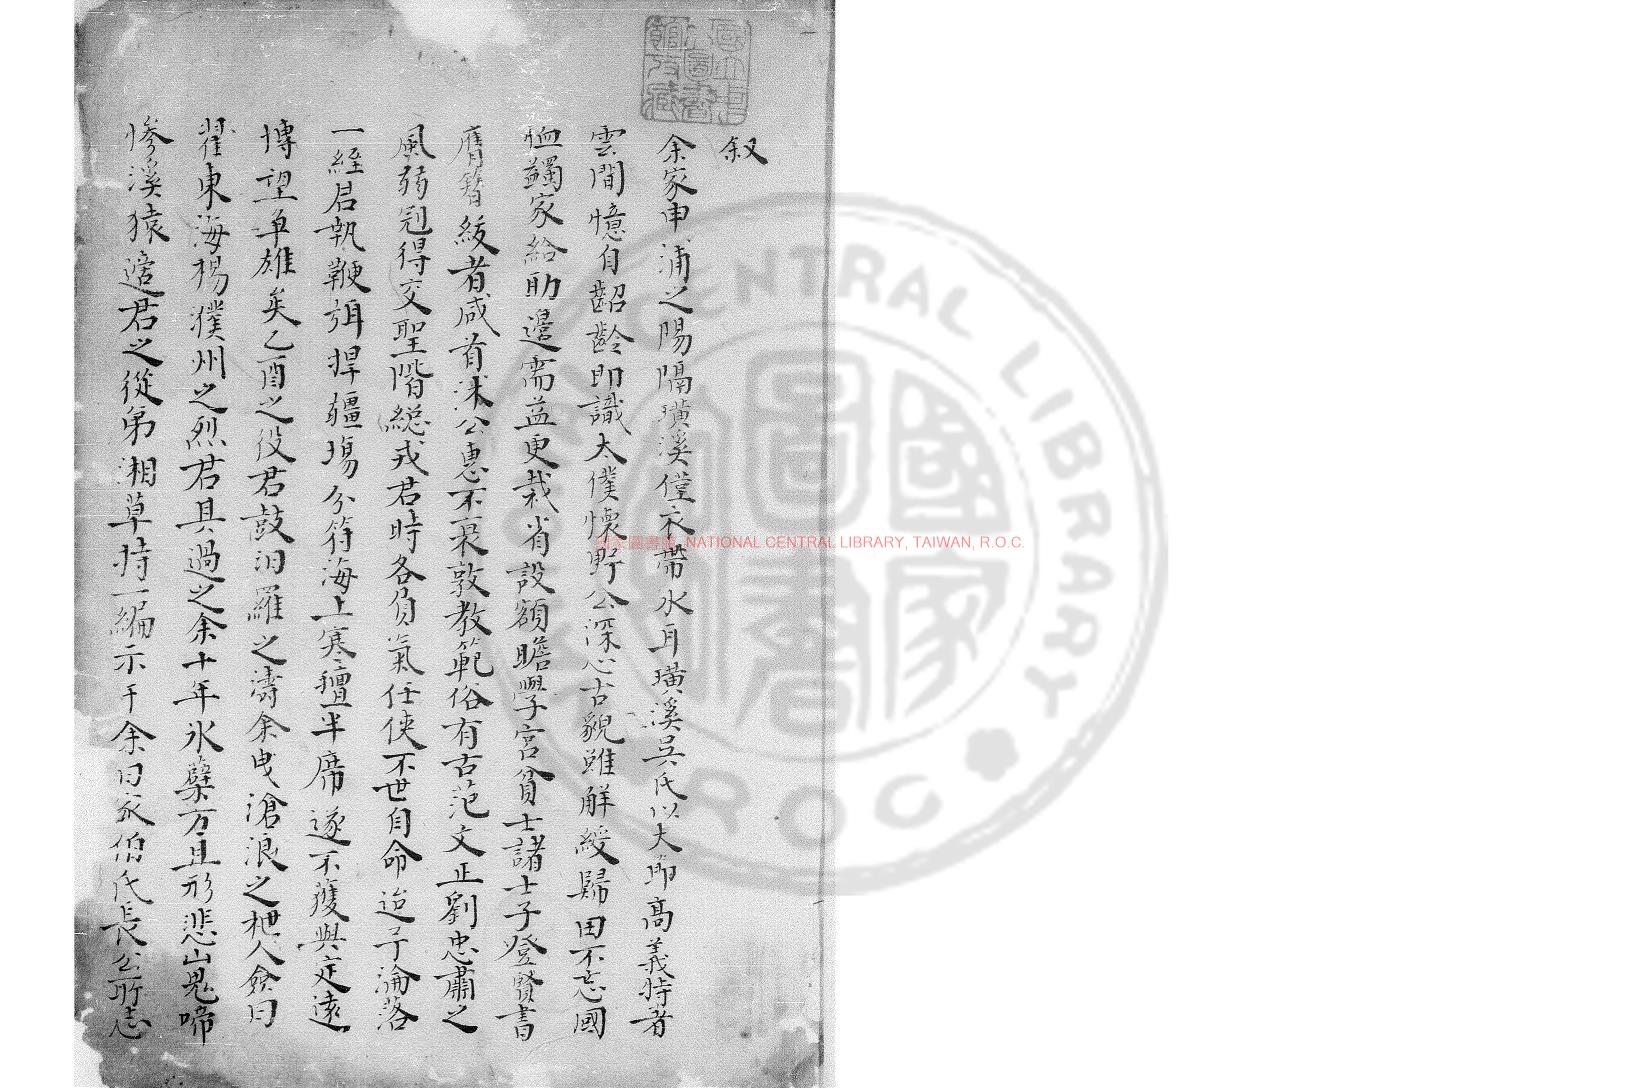 叙
余家申浦之陽隔璜溪僅衣帶水耳璜溪吳氏以大節高義特者
雲間憶自齠齡即識太僕懷野公深心古貌雖解綬歸田不忘國
恤蠲家給助邊需益更裁省設額贍學宮貧士諸士子登賢書
膺簪紱者咸首沐公惠不衰敦教範俗有古范文正劉忠肅之
風弱冠得交聖階總戎君時各負氣任俠不世自命迨予淪落
一經君執鞭弭捍疆場分符海上寒氊半席遂不獲與定遠
博望爭雄矣乙酉之役君鼓汨羅之濤余曳滄浪之枻人僉曰
翟東海楊濮州之烈君具過之余十年氷蘗方且形悲山鬼啼
慘溪猿適君之從弟湘草持一編示于余曰家伯氏長公所志
國立中央圖書館收藏
國家圖書館, NATIONAL CENTRAL LIBRARY, TAIWAN, R.O.C.
CENTRAL LIBRARY
ROC
國家圖書館